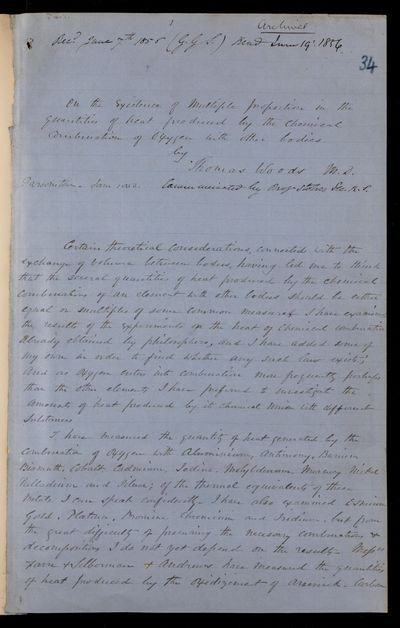 Archives
Recd June 7th 1856 (G.G.S.) Read June 19. 1856
34
On the Existence of Multiple Proportion in the
quantities of heat produced by the chemical
combination of Oxygen with other bodies
by
Thomas Woods M.D.
Parsonstown. June 1856. Communicated by Prof. Stokes Sec. R.S.
Certain theoretical considerations, connected with the
exchange of volume between bodies, having led me to think
that the several quantities of heat produced by the chemical
combination of an element with other bodies should be either
equal or multiples of some common measure I have examined
the results of the experiments on the heat of chemical combination
already obtained by philosophers, and I have added some of
my own in order to find whether any such law exists;
And as Oxygen enters into combination more frequently perhaps
than the other elements I have preferred to investigate the
amounts of heat produced by its chemical union with different
substances
I have measured the quantity of heat generated by the
combination of Oxygen with Aluminium, Antimony, Barium
Bismuth, Cobalt, Cadmium, Iodine, Molybdenum, Mercury Nickel
Palladium and Silver; of the thermal equivalents of these
metals I can speak confidently. I have also examined
Gold, Platina, Bromine Chromium and Iridium, but from
the great difficulty of procuring the necessary combinations &
decompositions I do not yet depend on the results. Messrs
Favre & Silberman & Andrews have measured the quantities
of heat produced by the oxidizement of Arsenic. Carbon